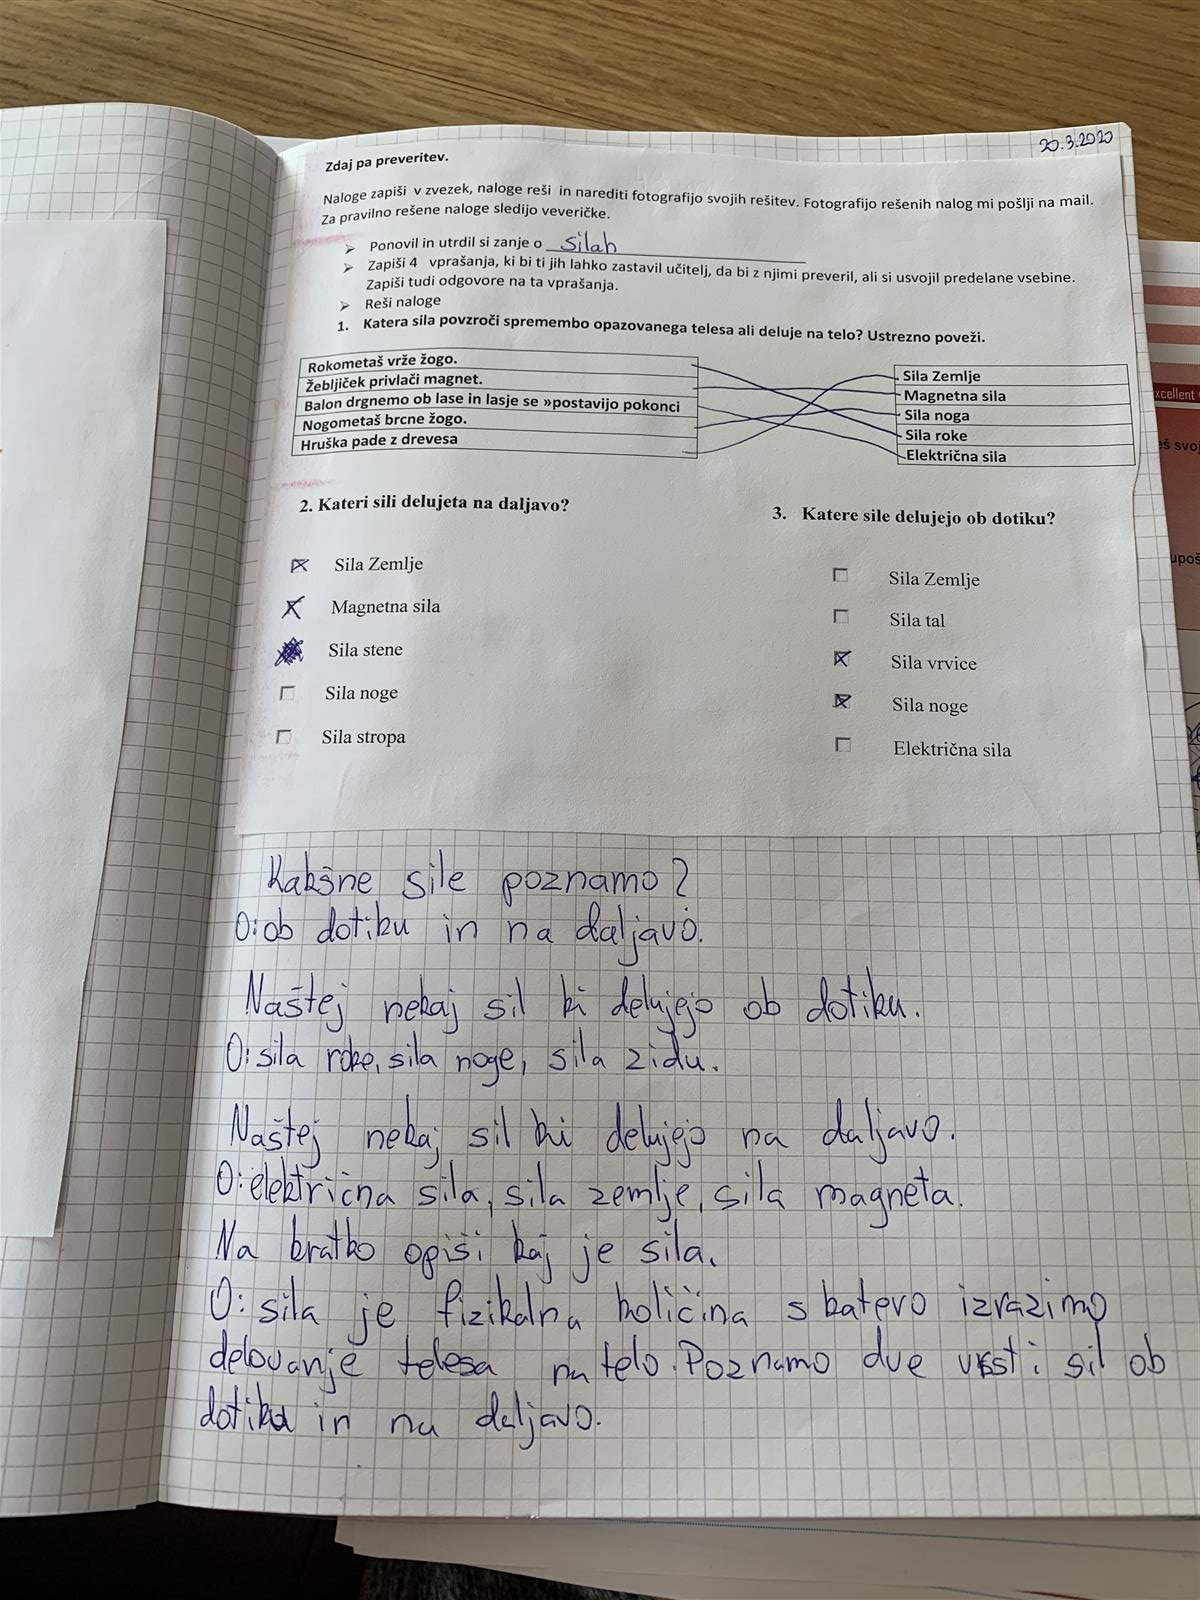 20.3.2020
Zdaj pa preveritev.
Naloge zapiši v zvezek, naloge reši in narediti fotografijo svojih rešitev. Fotografijo rešenih nalog mi pošlji na mail.
Za pravilno rešene naloge sledijo veveričke.
➢ Ponovil in utrdil si zanje o silah
➢ Zapiši 4 vprašanja, ki bi ti jih lahko zastavil učitelj, da bi z njimi preveril, ali si usvojil predelane vsebine.
Zapiši tudi odgovore na ta vprašanja.
➢ Reši naloge
1. Katera sila povzroči spremembo opazovanega telesa ali deluje na telo? Ustrezno poveži.
Rokometaš vrže žogo.
Žebljiček privlači magnet.
Balon drgnemo ob lase in lasje se »postavijo pokonci
Nogometaš brcne žogo.
Hruška pade z drevesa
Sila Zemlje
Magnetna sila
Sila noga
Sila roke
Električna sila
2. Kateri sili delujeta na daljavo?
Sila Zemlje
Magnetna sila
Sila stene
Sila noge
Sila stropa
3. Katere sile delujejo ob dotiku?
Sila Zemlje
Sila tal
Sila vrvice
Sila noge
Električna sila
Kakšne sile poznamo?
O: ob dotiku in na daljavo.
Naštej nekaj sil ki delujejo ob dotiku.
O: sila roke, sila noge, sila zidu.
Naštej nekaj sil ki delujejo na daljavo.
O: električna sila, sila zemlje, sila magneta.
Na kratko opiši kaj je sila.
O: sila je fizikalna količina s katero izrazimo
delovanje telesa na telo. Poznamo dve vrsti sil ob
dotiku in na daljavo.
xcellent
eš svoj
upoš